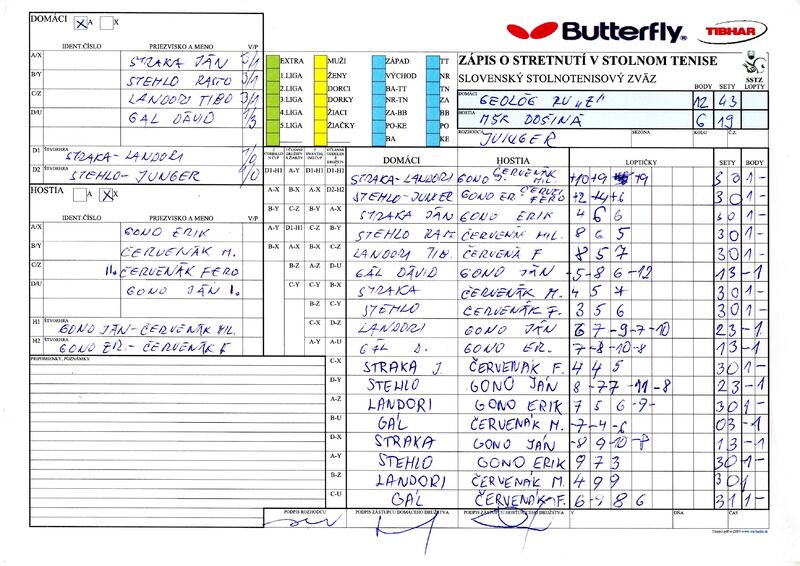 DOMÁCI A X
Butterfly TIBHAR
IDENT.ČÍSLO PRIEZVISKO A MENO V/P
A/X STRAKA JÁN 3/1
B/Y STEHLO RASŤO 3/1
C/Z LANDORI TIBO 3/1
D/U GÁL DÁVID 1/3
D1 ŠTVORHRA STRAKA-LANDORI 1/0
D2 ŠTVORHRA STEHLO-JUNGER 1/0
HOSTIA A X
IDENT.ČÍSLO PRIEZVISKO A MENO V/P
A/X GONO ERIK
B/Y ČERVENÁK M.
C/Z II. ČERVENÁK FERO
D/U GONO JÁN I.
H1 ŠTVORHRA GONO JÁN-ČERVENÁK MIL.
H2 ŠTVORHRA GONO ER.-ČERVENÁK F
PRIPOMIENKY, POZNÁMKY
EXTRA MUŽI ZÁPAD TT
1.LIGA ŽENY VÝCHOD NR
2.LIGA DORCI BA-TT TN
3.LIGA DORKY NR-TN ZA
4.LIGA ŽIACI ZA-BB BB
5.LIGA ŽIAČKY PO-KE PO
BA KE
ZÁPIS O STRETNUTÍ V STOLNOM TENISE
SLOVENSKÝ STOLNOTENISOVÝ ZVÄZ
SSTZ
BODY SETY LOPTY
DOMÁCI GEOLÓG RU „Z" 12 43
HOSTIA MŠK DOŠINÁ 6 19
ROZHODCA JUNGER SEZONA KOLO Č.Z.
DOMÁCI HOSTIA LOPTIČKY SETY BODY
D1-H1 A-Y D1-H1 A-X STRAKA-LANDORI GONO J. ČERVENÁK MIL. +10+9 +9 3 0 1 -
A-X B-X A-X D2-H2 STEHLO-JUNGER GONO ER. ČERVEN. FERO +2+4+6 3 0 1 -
B-Y C-Z B-Y A-X STRAKA JÁN GONO ERIK 4 6 6 3 0 1 -
A-Y D1-H1 C-Z B-Y STEHLO RAST. ČERVENÁK MIL. 8 6 5 3 0 1 -
B-X A-X B-X C-Z LANDORI TIB. ČERVENÁ F 8 5 7 3 0 1 -
B-Z A-Z D-U GÁL DÁVID GONO JÁN -5-8 6-12 1 3 - 1
C-Y C-Y B-X STRAKA ČERVENÁK M. 4 5 7 3 0 1 -
B-Z C-Y STEHLO ČERVENÁK F. 3 5 6 3 0 1 -
C-X D-Z LANDORI GONO JÁN 6 7-9-7-10 2 3 - 1
A-Y A-U GÁL D. GONO ER. -7-8 10-8 1 3 - 1
C-X STRAKA J. ČERVENÁK F. 4 4 5 3 0 1 -
D-Y STEHLO GONO JÁN 8-7 7-11-8 2 3 - 1
A-Z LANDORI GONO ERIK 7 5 6 -9- 3 0 1 -
B-U GÁL ČERVENÁK M. -7-4-6 0 3 - 1
D-X STRAKA GONO JÁN -8 9-10-8 1 3 - 1
A-Y STEHLO GONO ERIK 9 7 3 3 0 1 -
B-Z LANDORI ČERVENÁK M. 4 9 9 3 0 1 -
C-U GÁL ČERVENÁK F. 6-9 8 6 3 1 1 -
PODPIS ROZHODCU PODPIS ZÁSTUPCU DOMÁCEHO DRUŽSTVA PODPIS ZÁSTUPCU HOSŤUJÚCEHO DRUŽSTVA V DŇA ČAS